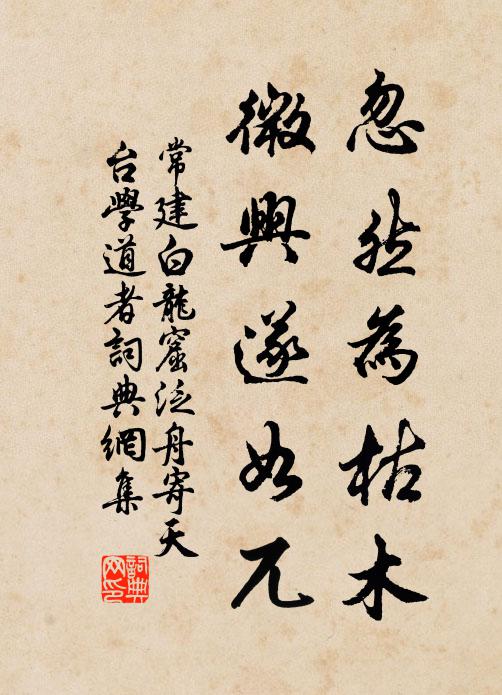 忽然為枯木
微興遂如兀
常建白龍窟泛舟寄天
台學道者詞典網集
詞典网印